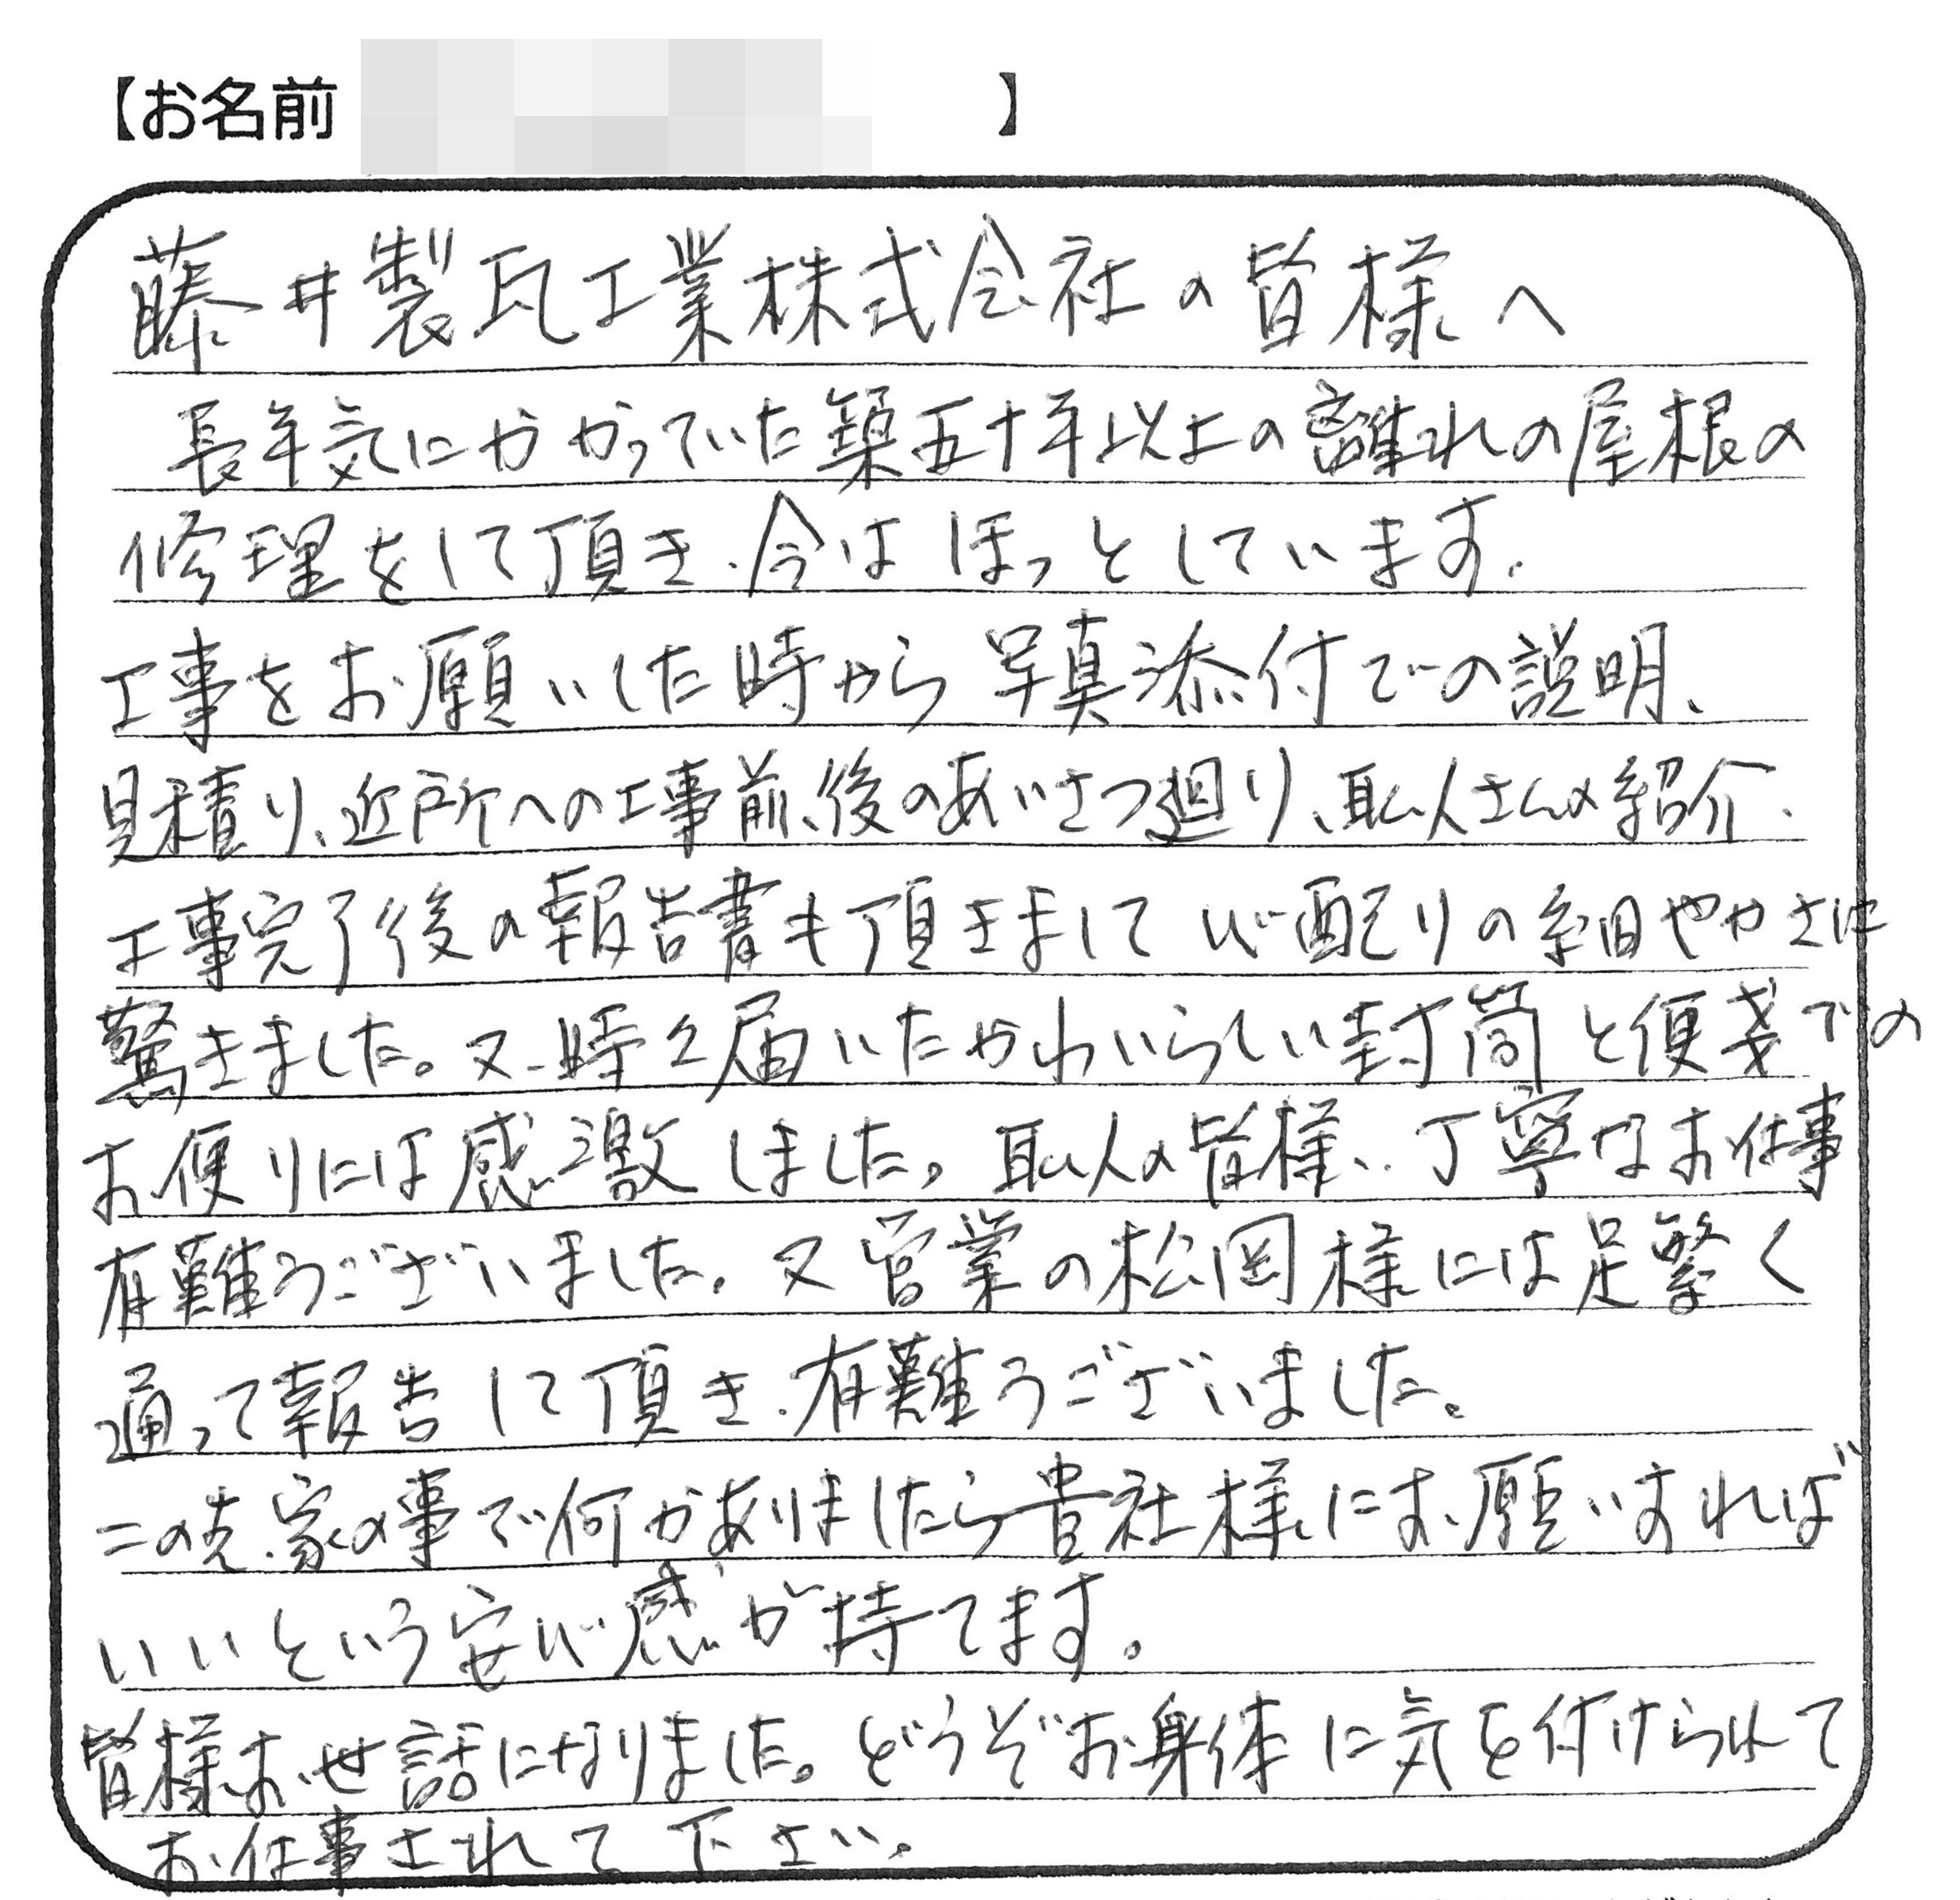 【お名前　　　　】
藤井製瓦工業株式会社の皆様へ
長年気にかかっていた築五十年以上の離れの屋根の
修理をして頂き、今はほっとしています。
工事をお願いした時から写真添付での説明、
見積り、近所への工事前、後のあいさつ廻り、職人さんの紹介、
工事完了後の報告書も頂きまして心配りの細やかさに
驚きました。又、時々届いたかわいらしい封筒と便箋での
お便りには感激しました。職人の皆様、丁寧なお仕事
有難うございました。又営業の松岡様には足繁く
通って報告して頂き、有難うございました。
この先、家の事で何かありましたら貴社様にお願いすれば
いいという安心感が持てます。
皆様お世話になりました。どうぞお身体に気を付けられて
お仕事されて下さい。